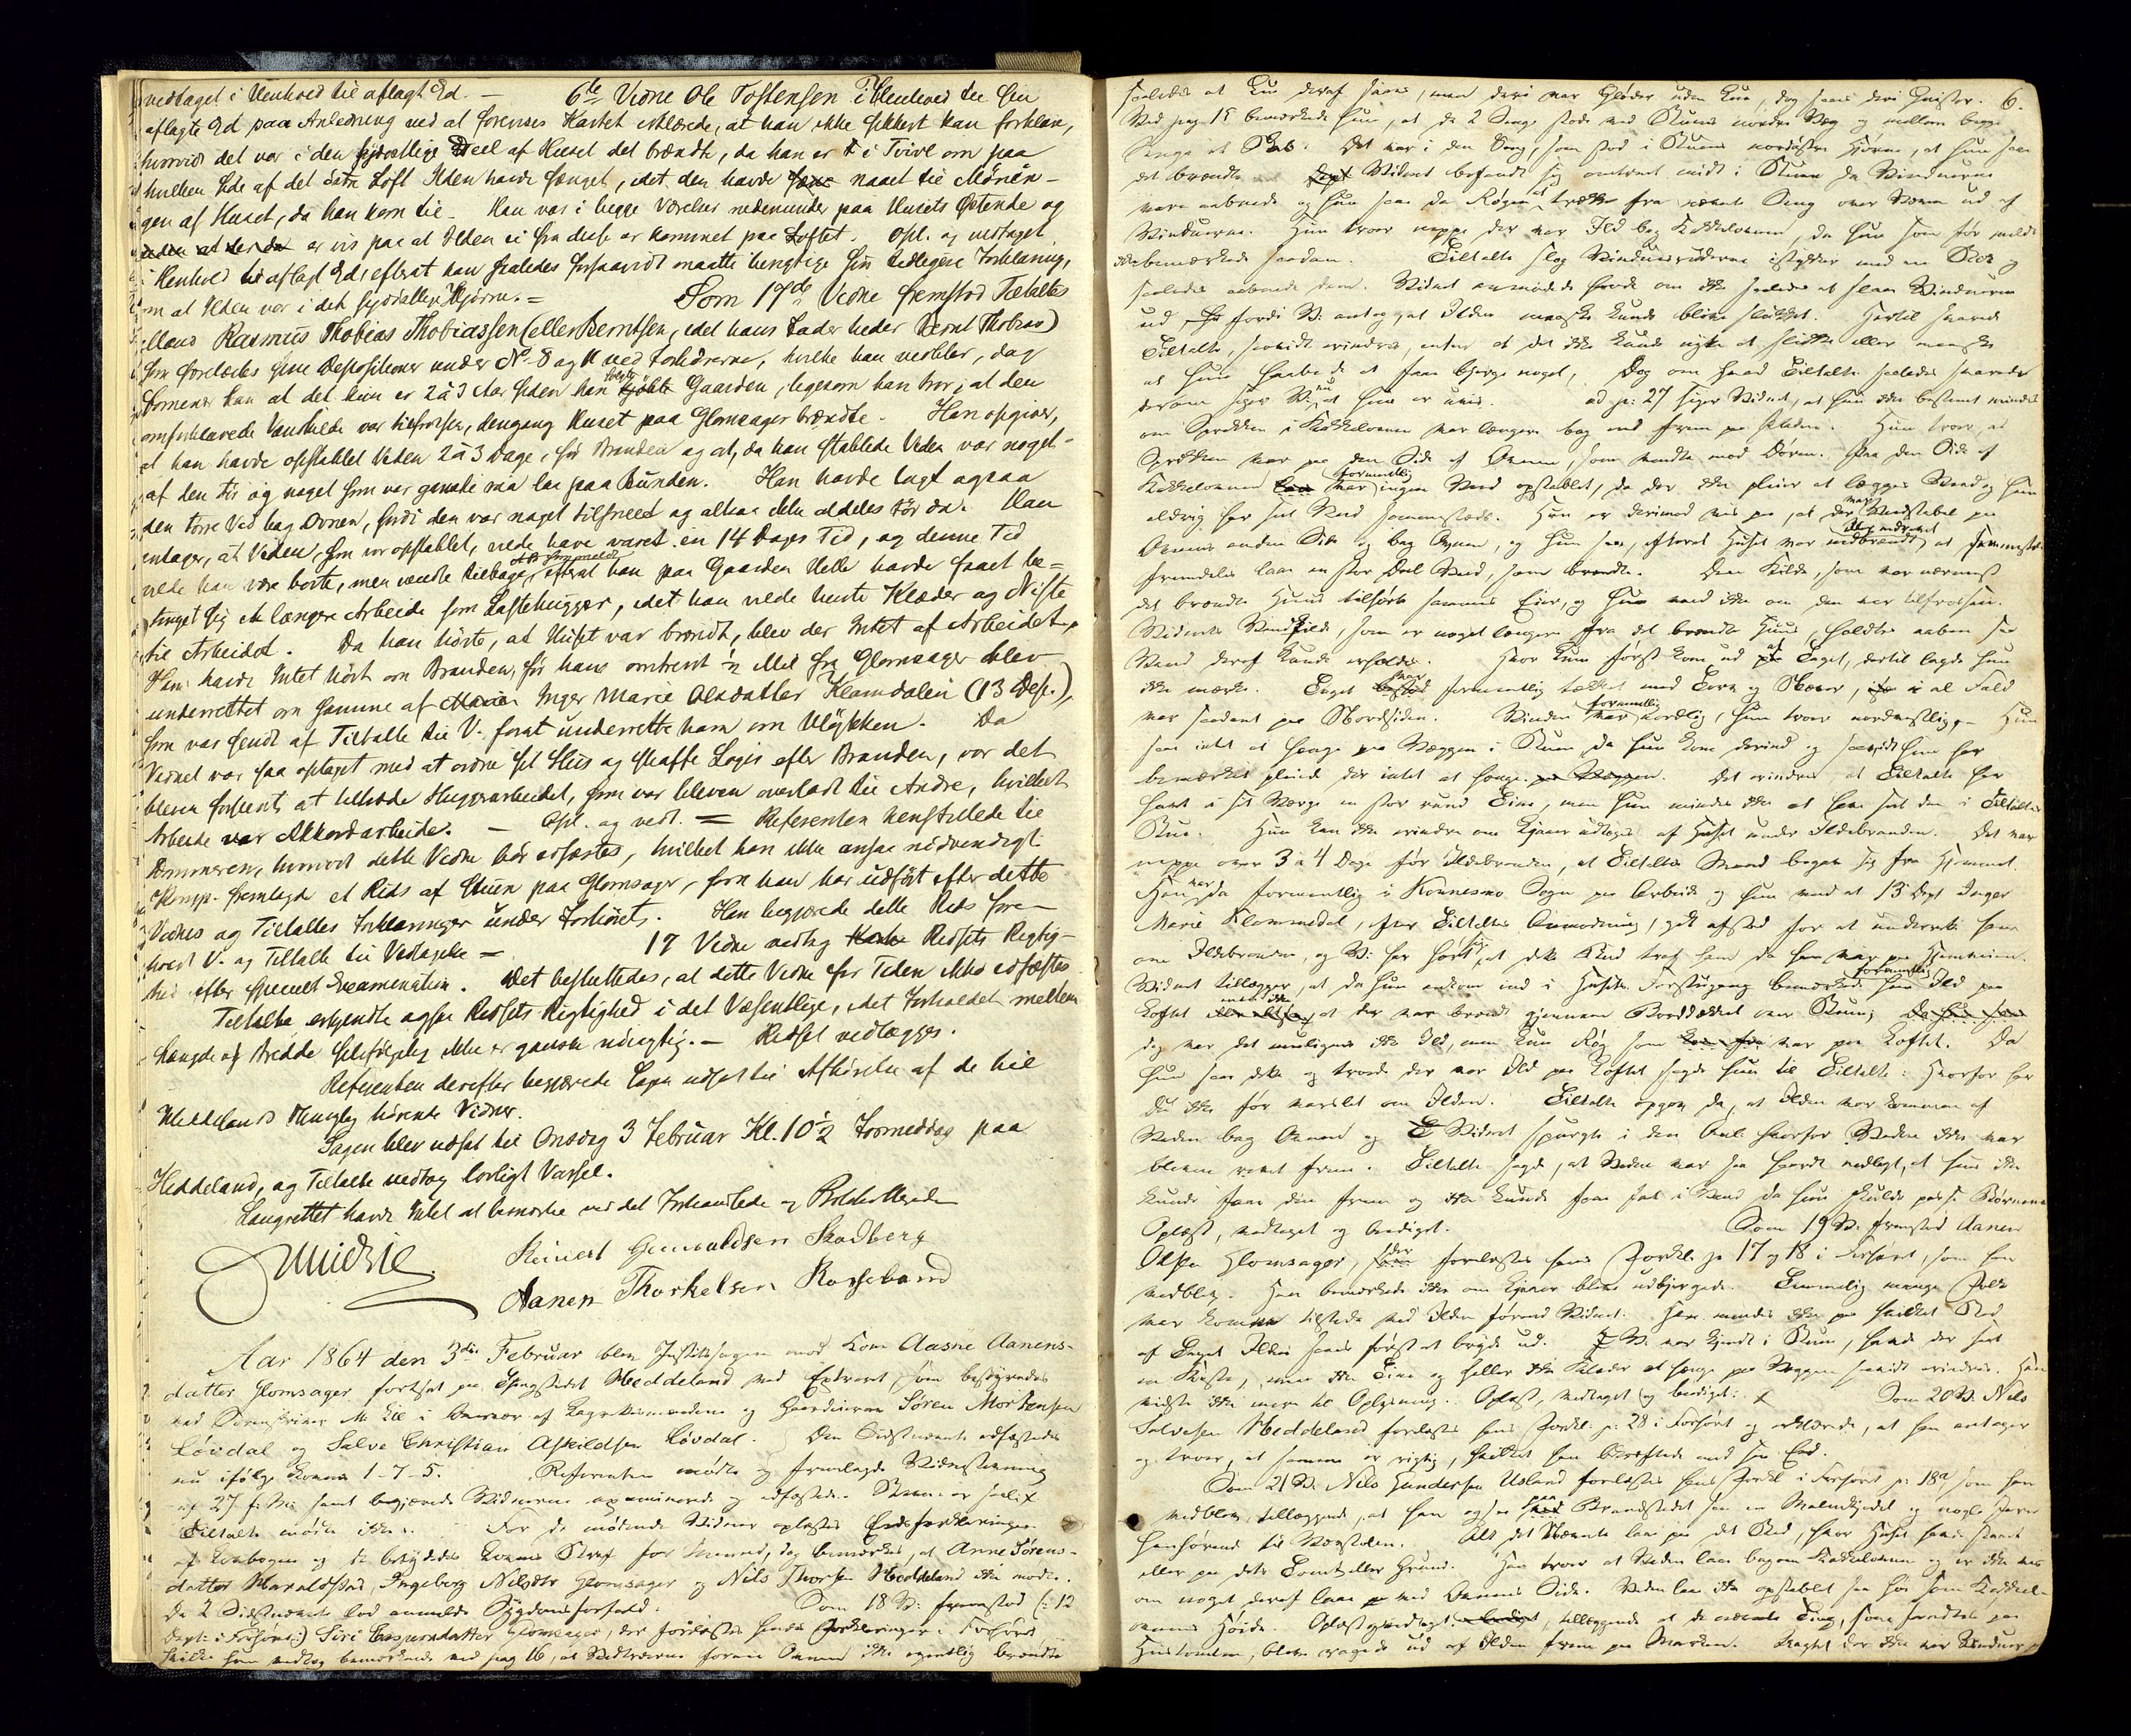 vedtaget i Henhold til aflagt Ed. — 6te Vidne Ole Tostensen i Henhold til sin
aflagte Ed paa Anledning ved at forevises Kartet erklærede, at han ikke sikkert kan forklare,
hvorvidt det var i den sydvestlige Deel af Huset det brændte, da han er i Tvivl om paa
hvilken Side af det østre Loft Ilden havde fænget, idet den havde naaet til Mønin-
gen af Huset, da han kom til. Han var i begge Værelser nedenunder paa Husets Østende og
er vis paa at Ilden ei fra disse er kommet paa Loftet. Opl. og vedtaget
i Henhold til aflagt Ed, efterat han saaledes forsaavidt maatte berigtige sin tidligere Forklaring,
om at Ilden var i det sydvestlige Hjørne. = Som 17de Vidne fremstod Tiltaltes
Mand Rasmus Thobias Thobiassen (eller Berntsen, idet hans Fader heder Bernt Thobias)
som forelæstes sine Depositioner under No 8 og 11 ved Forhørerne, hvilke han vedbliver, dog
formener han at det kun er 2 à 3 Aar siden han kjøbte Gaarden, ligesom han tror, at den
omforklarede Vandkilde var tilfrossen, dengang Huset paa Glomsager brændte. Han opgiver,
at han havde opstablet Veden 2 à 3 Dage, før Branden og at, da han stablede Veden var noget
af den tør og noget som var ganske raa laa paa Bunden. Han havde lagt ogsaa
den tørre Ved bag Ovnen, fordi den var noget tilsneet og altsaa ikke aldeles tør da. Han
antager, at Veden, som var opstablet, vilde have varet en 14 Dages Tid, og denne Tid
vilde han være borte, men vendte tilbage, efterat han paa Gaarden Helle havde faaet be-
tinget sig et længere Arbeide som Lastehugger, idet han vilde hente Klæder og Niste
til Arbeidet. Da han hørte, at Huset var brændt, blev der Intet af Arbeidet.
Han havde Intet hørt om Branden, før han omtrent ½ Mil fra Glomsager blev
underrettet om samme af Inger Marie Olsdatter Klamdalen (13 Dep.),
som var sendt af Tiltalte til V. forat underrette ham om Ulykken. Da
Vidnet var saa optaget med at ordne sit Huus og skaffe Logis efter Branden, var det
bleven forsent at tiltræde Huggerarbeidet, som var bleven overladt til Andre, hvilket
Arbeide var Akkordarbeide. — Opl. og vedt. = Referenten henstillede til
Dommeren, hvorvidt dette Vidne bør edfæstes, hvilket han ikke ansaa nødvendigt.
Komp. fremlagde et Rids af Stuen paa Glomsager, som han har udført efter dette
Vidnes og Tiltaltes Forklaringer under Forhøret. Han begjærede dette Rids fore-
holdt V. og Tiltalte til Vedtagelse = 17 Vidne vedtog Ridsets Rigtig-
hed efter specielt Examination. Det besluttedes, at dette Vidne for Tiden ikke edfæstes.
Tiltalte erkjendte ogsaa Ridsets Rigtighed i det Væsentlige, idet Forholdet mellem
Længde og Bredde selvfølgelig ikke er ganske nøiagtig. — Ridset vedlægges.
Referenten derefter begjærede Sagen udsat til Afhørelse af de til
Heddelands Thinglag hørende Vidner.
Sagen blev udsat til Onsdag 3 Februar Kl. 10½ Formiddag paa
Heddeland, og Tiltalte vedtog lovligt Varsel.
Laugrettet havde Intet at bemærke ved det Forhandlede og Protokollerede
Reinert Gunvaldsen Skadberg
Aanen Thorkelsen Rosseland
Aar 1864 den 3die Februar blev Justitssagen mod Kone Aasne Aanens-
datter Glomsager fortsat paa Thingstedet Heddeland med Extraret, som bestyredes
ved Sorenskriver M. Kiel i Overvær af Lagrettesmændene og Gaardmændene Søren Mortensen
Løvdal og Salve Christian Askildsen Løvdal. Den Sidstnævnte edfæstedes
nu ifølge Loven 1-7-5. Referenten mødte og fremlagde Vidnestevning
af 27 f. M. samt begjærede Vidnerne examinerede og edfæstede.
Tiltalte mødte ikke. For de mødende Vidner oplæstes Edsforklaringen
af Lovbogen og de betydedes Lovens Straf for Meened, dog bemærkes, at Anne Sørens-
datter Haraldstad, Ingeborg Nilsdtr Glomsager og Nils Thorsen Heddeland ikke mødte.
De 2 Sidstnævnte lod anmelde Sygdomsforfald. Som 18 V. fremstod (: 12
Dept. i Forhøret :) Siri Caspersdatter Glomsager, der forelæstes hendes Forklaringer i Forhøret
hvilke hun vedtog bemærkende ved pag 16, at Vedtræerne foran Ovnen ikke egentlig brændte
6.
saaledes at Lue deraf saaes, men deri var Gløder uden Lue, dog saaes deri Gnister.
Ved pag 15 bemærkede hun, at de 2 Senge stode ved Stuens nordre Væg og mellem begge
Senge et Skab. Det var i den Seng, som stod i Stuens nordøstre Hjørne, at hun saa
det brændte. Vidnet befandt sig omtrent midt i Stuen da Vinduerne
vare aabnede og hun saa da Røgen at trække fra nævnte Seng over Døren ud af
Vinduerne. Hun troer neppe der var Ild bag Kakkelovnen, da hun som før meldt
ikke bemærkede saadan. Tiltalte slog Vinduesruderne istykker med en Stok og
saaledes aabnede dem. Vidnet anmodede hende om ikke saaledes at slaae Vinduerne
ud, fordi V. antog, at Ilden maaske kunde blive slukket. Hertil svarede
Tiltalte, saavidt erindres, enten at det ikke kunde nytte at slukke eller maaske
at hun haabede at faae bjerge noget, Dog om hvad Tiltalte saaledes svarede
derom siger V. nu at hun er uvis. ad p: 27 siger Vidnet, at hun ikke bestemt mindes
om Sprækken i Kakkelovnen var længere bag end frem paa Pladen. Hun troer, at
Sprækken var paa den Side af Ovnen, som vendte mod Døren. Paa den Side af
Kakkelovnen var formentlig ingen Ved opstablet, da der ikke pleier at lægges Ved og hun
aldrig har seet Ved sammesteds. Hun er derimod vis paa, at der var Vedstabel paa
Ovnens anden Side og bag Ovnen, og hun saa, efterat Huset var nedbrændt, at sammesteds
fremdeles laae en stor Deel Ved, som brændte. Den Kilde, som var nærmest
det brændte Huus tilhørte sammes Eier, og hun veed ikke om den var tilfrossen.
Vidnets Vandkilde, som er noget længere fra det brændte Huus, holdtes aaben saa
Vand deraf kunde erholdes. Hvor Luen først kom ud af Taget, dertil lagde hun
ikke mærke. Taget var formentlig tækket med Torv og Næver, i al Fald
var saadant paa Nordsiden. Vinden var formentlig nordlig, hun troer nordvestlig. Hun
saa intet at hænge paa Væggen i Stuen da hun kom derind og saavidt hun har
bemærket pleiede der intet at hænge. Det erindres, at Tiltalte har
havt i sit Værge en stor rund Tine, men hun mindes ikke at have seet den i Tiltaltes
Stue. Hun kan ikke erindre om Kjører udtoges af Huset under Ildebranden. Det var
neppe over 3 a 4 Dage før Ildebranden, at Tiltaltes Mand begav sig fra Hjemmet.
Han var da formentlig i Konnesmo Sogn paa Arbeide og hun veed at 13 Dept Inger
Marie Klommedal, efter Tiltaltes Anmodning, gik afsted for at underrette ham
om Ildebranden, og V. har hørt sige, at dette Bud traf ham da han var paa Hjemveien.
Vidnet tillægger, at da hun ankom ind i Husets Forstugang bemærkede hun formentlig Ild paa
Loftet men ikke at der var brændt gjennem Bordtækket over Stuen,
dog var det muligens ikke Ild, men kun Røg som var paa Loftet. Da
hun saa dette og troede der var Ild paa Loftet sagde hun til Tiltalte: Hvorfor har
Du ikke før varslet om Ilden. Tiltalte opgav da, at Ilden var kommen af
Veden bag Ovnen og Vidnet spurgte i den Anl. hvorfor Veden ikke var
bleven revet frem. Tiltalte sagde, at Veden var saa haardt nedlagt, at hun ikke
kunde faae den frem og ikke kunde faae fat i Vand da hun skulde passe Børnene
Oplæst, vedtaget og beediget. Som 19 V. fremstod Aanen
Olsen Glomsager, der forelæstes hans Forkl. p 17 og 18 i Forhøret, som han
vedblev. Han bemærkede ikke om Kjører bleve udbjergede. Temmelig mange Folk
var kommen tilstede ved Ilden førend Vidnet. Han mindes ikke paa hvilket Sted
af Taget Ilden saaes først at bryde ud. V. var kjendt i Stuen, havde der seet
en Kiste, men ikke Tine og heller ikke Klæder at hænge paa Væggen saavidt erindres. Han
vidste ikke mere til Oplysning. Oplæst, vedtaget og beediget. Som 20 V. Nils
Salvesen Heddeland forelæstes hans Forkl. p: 28 i Forhøret og erklærede, at han antager
og troer, at samme er rigtig, hvilket han bekræftede med sin Ed.
Som 21 V. Nils Gundersen Usland forelæstes hans Forkl i Forhøret p: 18a som han
vedblev, tillæggende, at han ogsaa paa Brandstedet saa en Malmkjedel og nogle
henhørende til Vævstolen. Alt det Nævnte laae paa det Sted, hvor Huset havde staaet
eller paa dets Tomt eller Grund. Han troer at Veden laae bagom Kakkelovnen og er ikke vis
om noget deraf laae ved Ovnens Side. Veden laa ikke opstablet saa høi som Kakkel-
ovnens Høide. Oplæst og vedtaget, tillæggende at de nævnte Ting, som fandtes paa
Huustomten, bleve ragede ud af Ilden frem paa Marken.